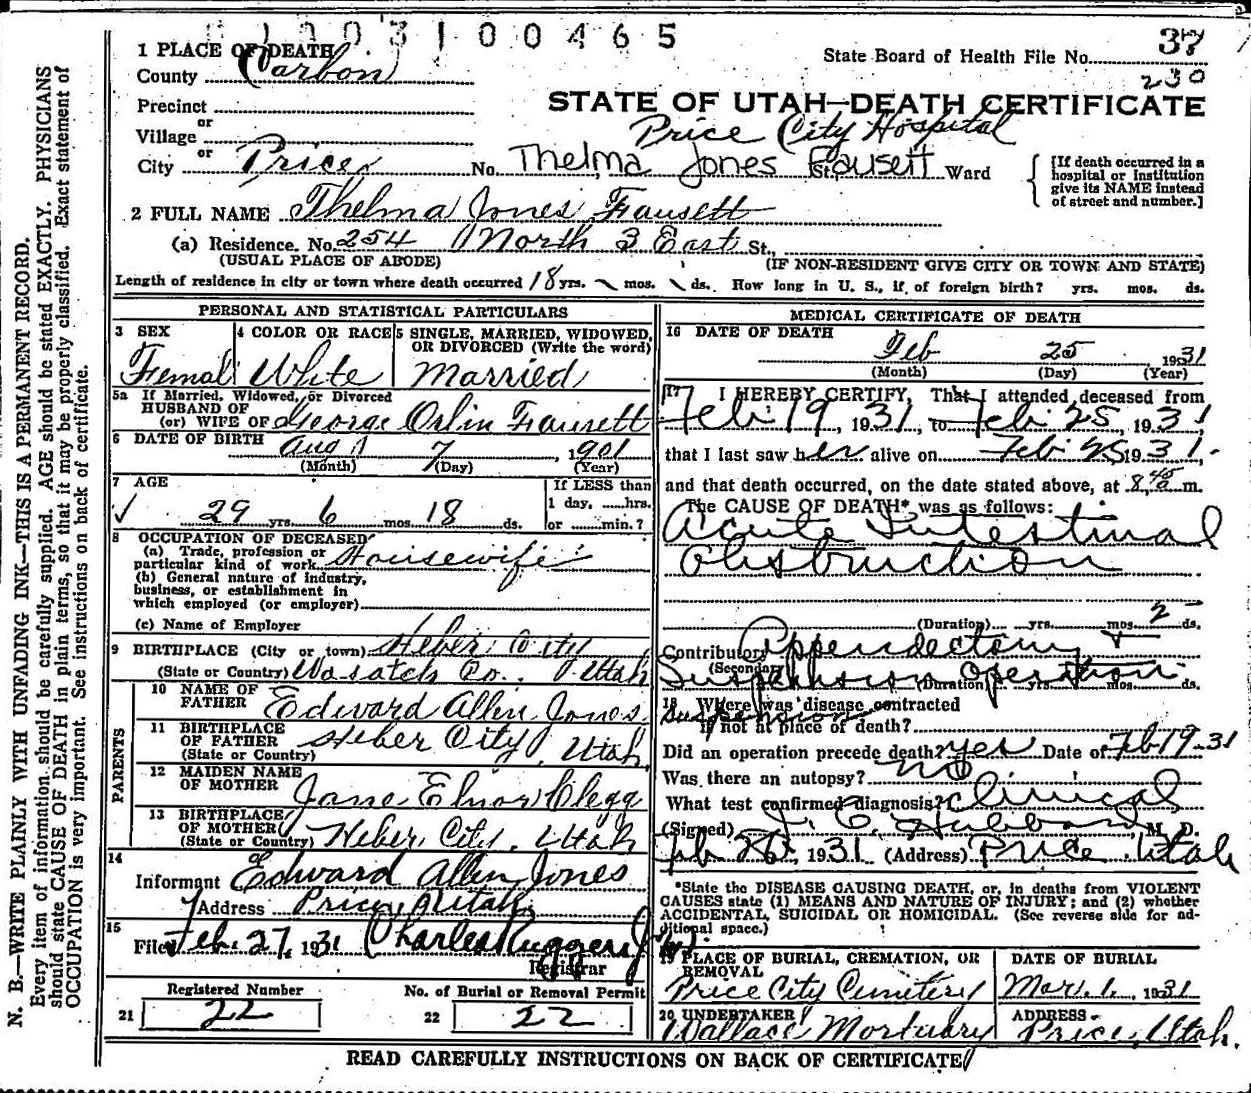 003100465
1 PLACE OF DEATH
County Carbon
State Board of Health File No. 37
230
STATE OF UTAH—DEATH CERTIFICATE
Precinct
or
Village
or
City Price
Price City Hospital
No. Thelma Jones Fausett St., Ward
[If death occurred in a hospital or Institution give its NAME instead of street and number.]
2 FULL NAME Thelma Jones Fausett
(a) Residence. No. 254 North 3 East St.,
(USUAL PLACE OF ABODE) (IF NON-RESIDENT GIVE CITY OR TOWN AND STATE)
Length of residence in city or town where death occurred 18 yrs. mos. ds. How long in U. S., if of foreign birth? yrs. mos. ds.
PERSONAL AND STATISTICAL PARTICULARS
3 SEX
Female
4 COLOR OR RACE
White
5 SINGLE, MARRIED, WIDOWED, OR DIVORCED (Write the word)
Married
5a If Married, Widowed, or Divorced
HUSBAND OF
(or) WIFE OF George Orlin Fausett
6 DATE OF BIRTH Aug 7, 1901
(Month) (Day) (Year)
7 AGE
29 yrs. 6 mos. 18 ds.
If LESS than
1 day, ......hrs.
or ......min.?
8 OCCUPATION OF DECEASED
(a) Trade, profession or
particular kind of work Housewife
(b) General nature of industry,
business, or establishment in
which employed (or employer)
(c) Name of Employer
9 BIRTHPLACE (City or town) Heber City
(State or Country) Wasatch Co., Utah
PARENTS
10 NAME OF
FATHER Edward Allin Jones
11 BIRTHPLACE
OF FATHER Heber City, Utah
(State or Country)
12 MAIDEN NAME
OF MOTHER Jane Elnor Clegg
13 BIRTHPLACE
OF MOTHER
(State or Country) Heber City, Utah
14
Informant Edward Allin Jones
Address Price, Utah
15
Filed Feb. 27, 1931 Charles Ruggeri Jr.
Registrar
Registered Number
21 22
No. of Burial or Removal Permit
22 22
MEDICAL CERTIFICATE OF DEATH
16 DATE OF DEATH
Feb 25 1931
(Month) (Day) (Year)
17 I HEREBY CERTIFY, That I attended deceased from
Feb. 19, 1931, to Feb. 25, 1931
that I last saw her alive on Feb 25 1931.
and that death occurred, on the date stated above, at 8 45 a m.
The CAUSE OF DEATH* was as follows:
Acute Intestinal
Obstruction
(Duration) yrs. mos. 2 ds.
Contributory Appendectomy +
(Secondary)
Suspension operation
(Duration) yrs. mos. ds.
18 Where was disease contracted
Suspension
if not at place of death?
Did an operation precede death? Yes Date of Feb 19-31
Was there an autopsy? no
What test confirmed diagnosis? Clinical
(Signed) J. C. Hubbard M. D.
Feb 26, 1931 (Address) Price, Utah
*State the DISEASE CAUSING DEATH, or, in deaths from VIOLENT
CAUSES state (1) MEANS AND NATURE OF INJURY; and (2) whether
ACCIDENTAL, SUICIDAL OR HOMICIDAL. (See reverse side for ad-
ditional space.)
19 PLACE OF BURIAL, CREMATION, OR
REMOVAL
Price City Cemetery
DATE OF BURIAL
Mar. 1, 1931
20 UNDERTAKER
Wallace Mortuary
ADDRESS
Price, Utah.
READ CAREFULLY INSTRUCTIONS ON BACK OF CERTIFICATE
N. B.—WRITE PLAINLY WITH UNFADING INK—THIS IS A PERMANENT RECORD.
Every item of information should be carefully supplied. AGE should be stated EXACTLY. PHYSICIANS
should state CAUSE OF DEATH in plain terms, so that it may be properly classified. Exact statement of
OCCUPATION is very important. See instructions on back of certificate.